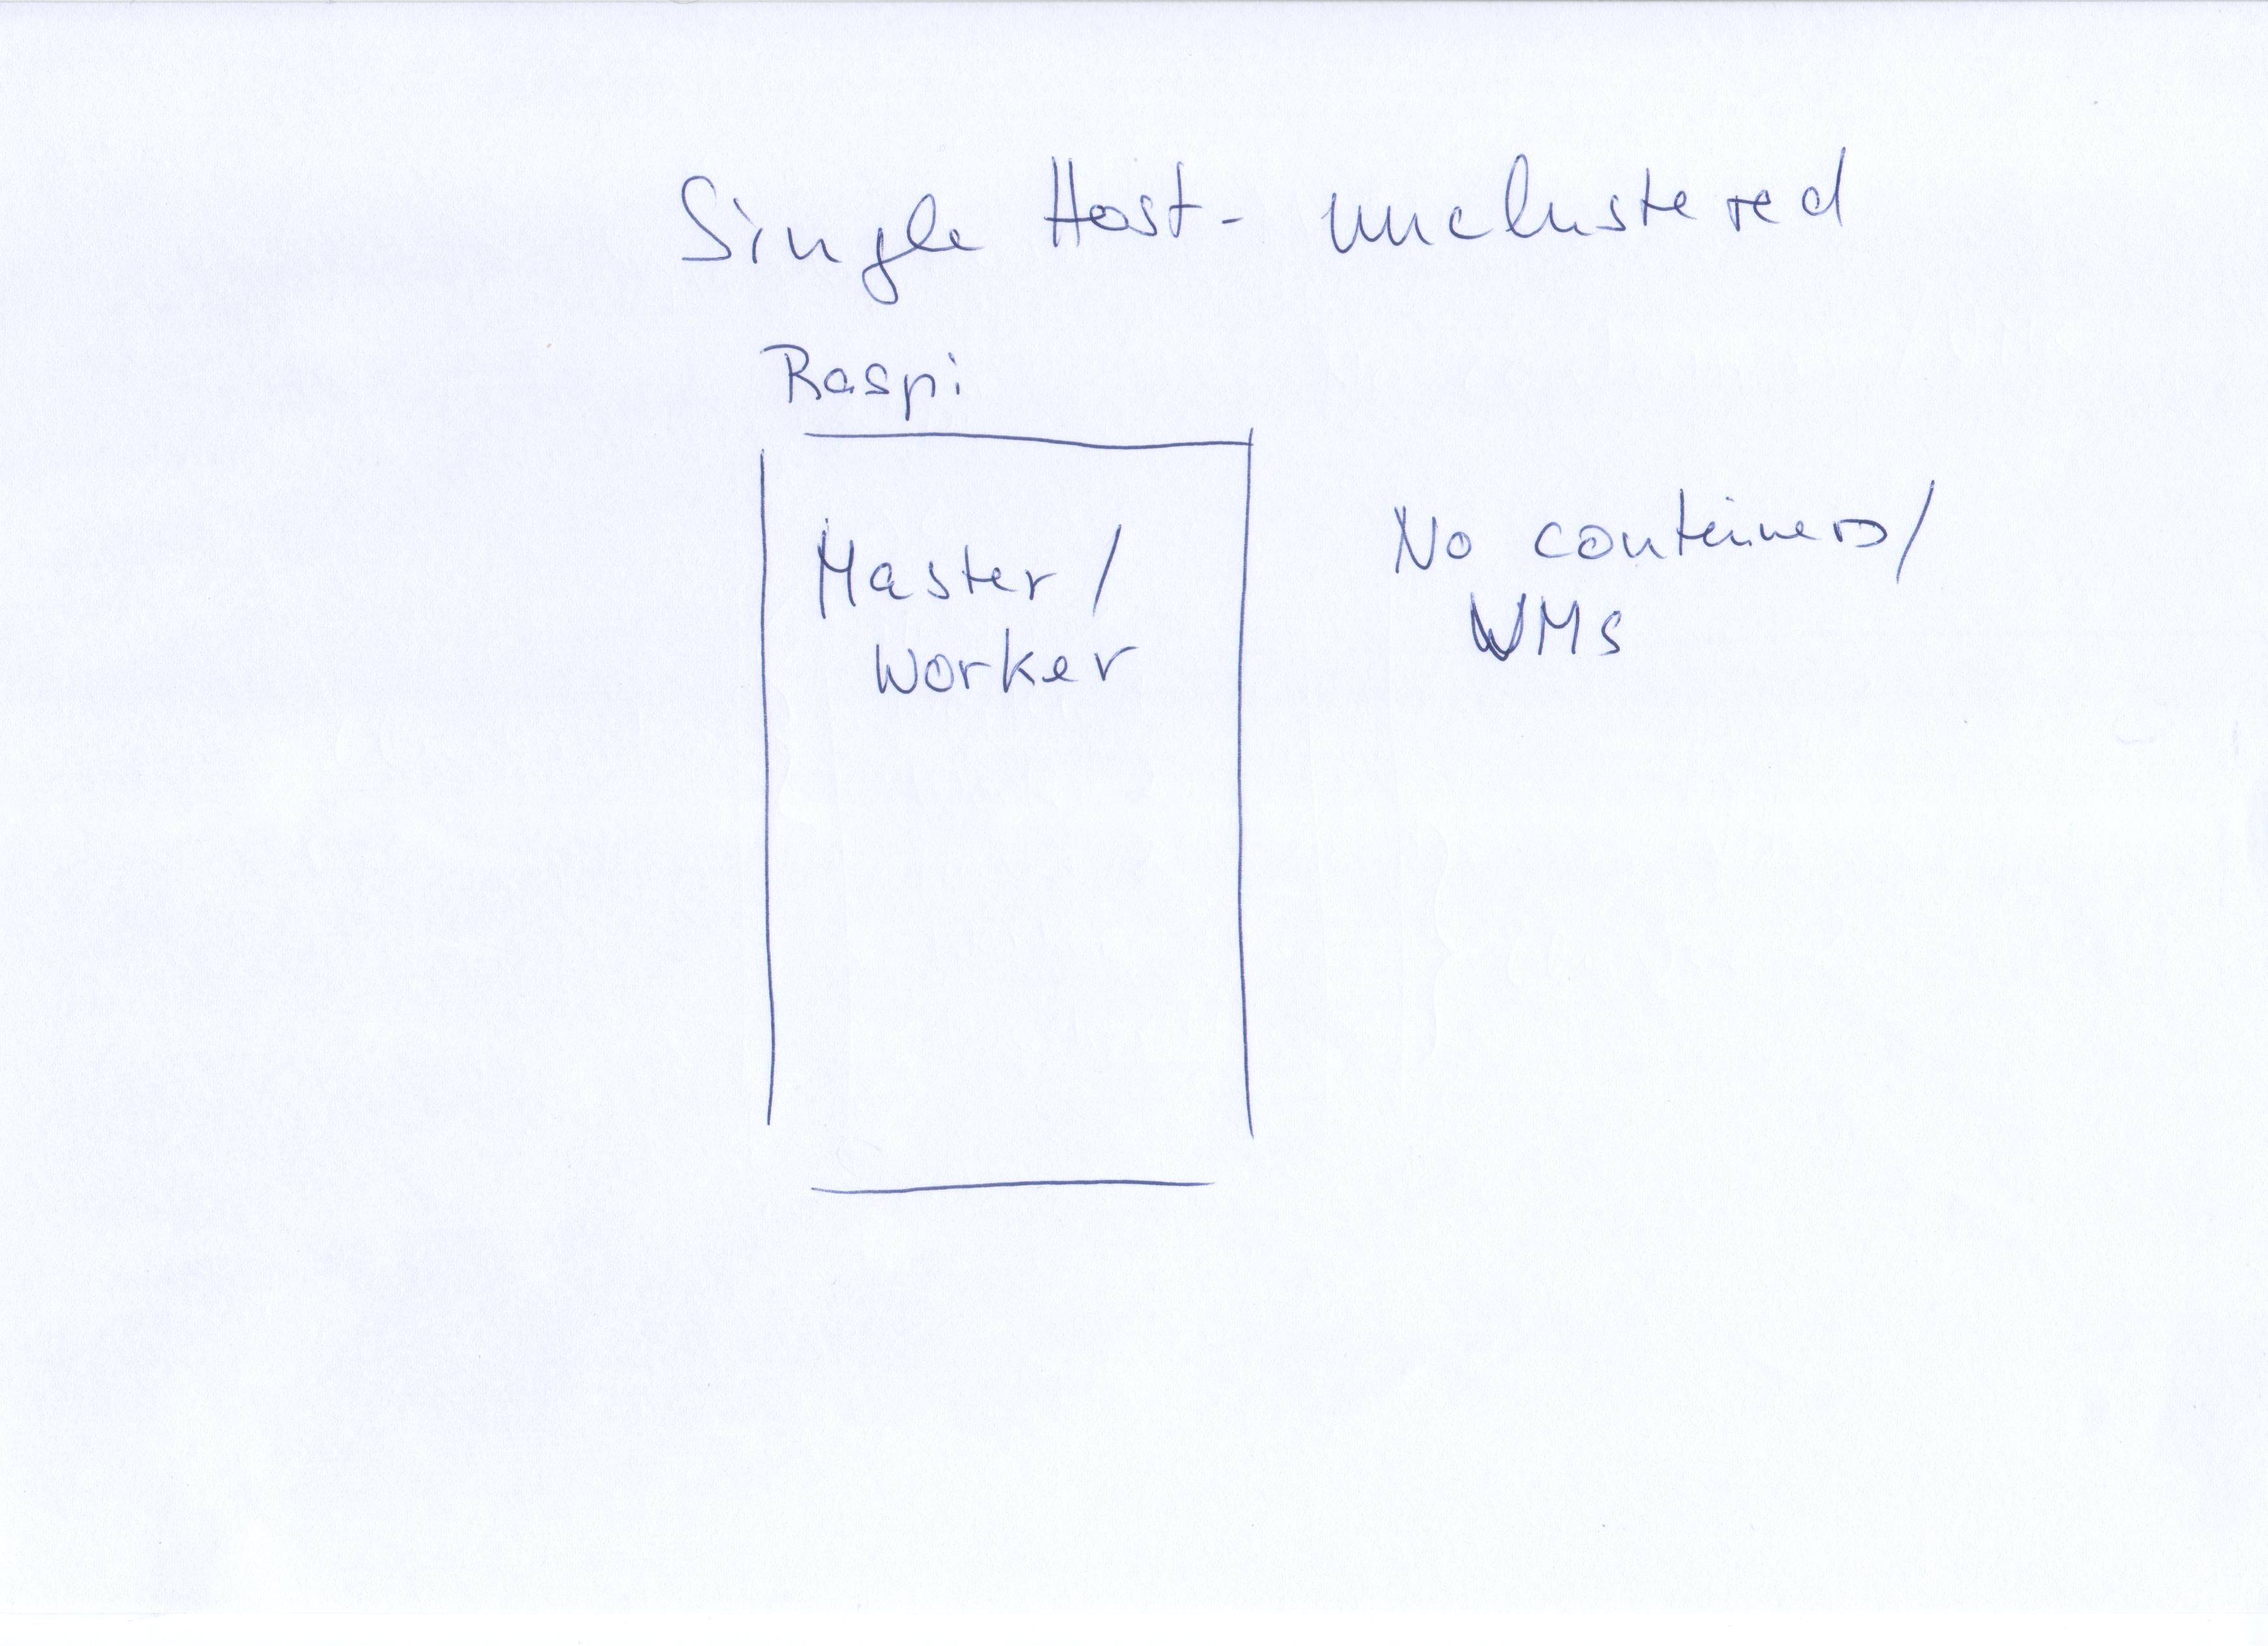 Single Host - unclustered
Raspi
Master /
Worker
No containers /
VMs